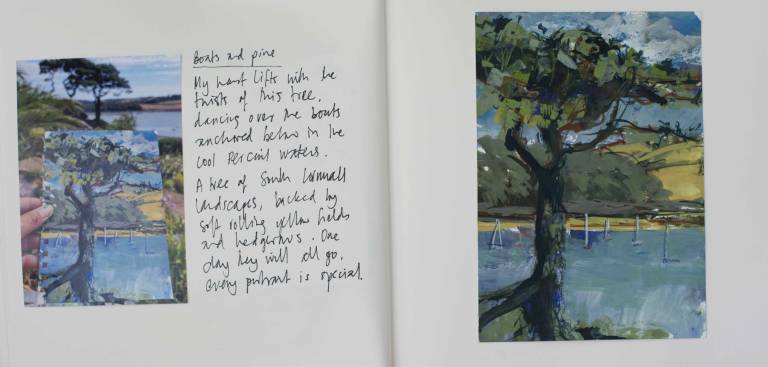 Boats and pine
My heart lifts with the
twists of this tree,
dancing over the boats
anchored below in the
cool Percuil waters.
A tree of South Cornwall
landscapes, backed by
soft rolling yellow fields
and hedgerows. One
day they will all go.
every portrait is special.